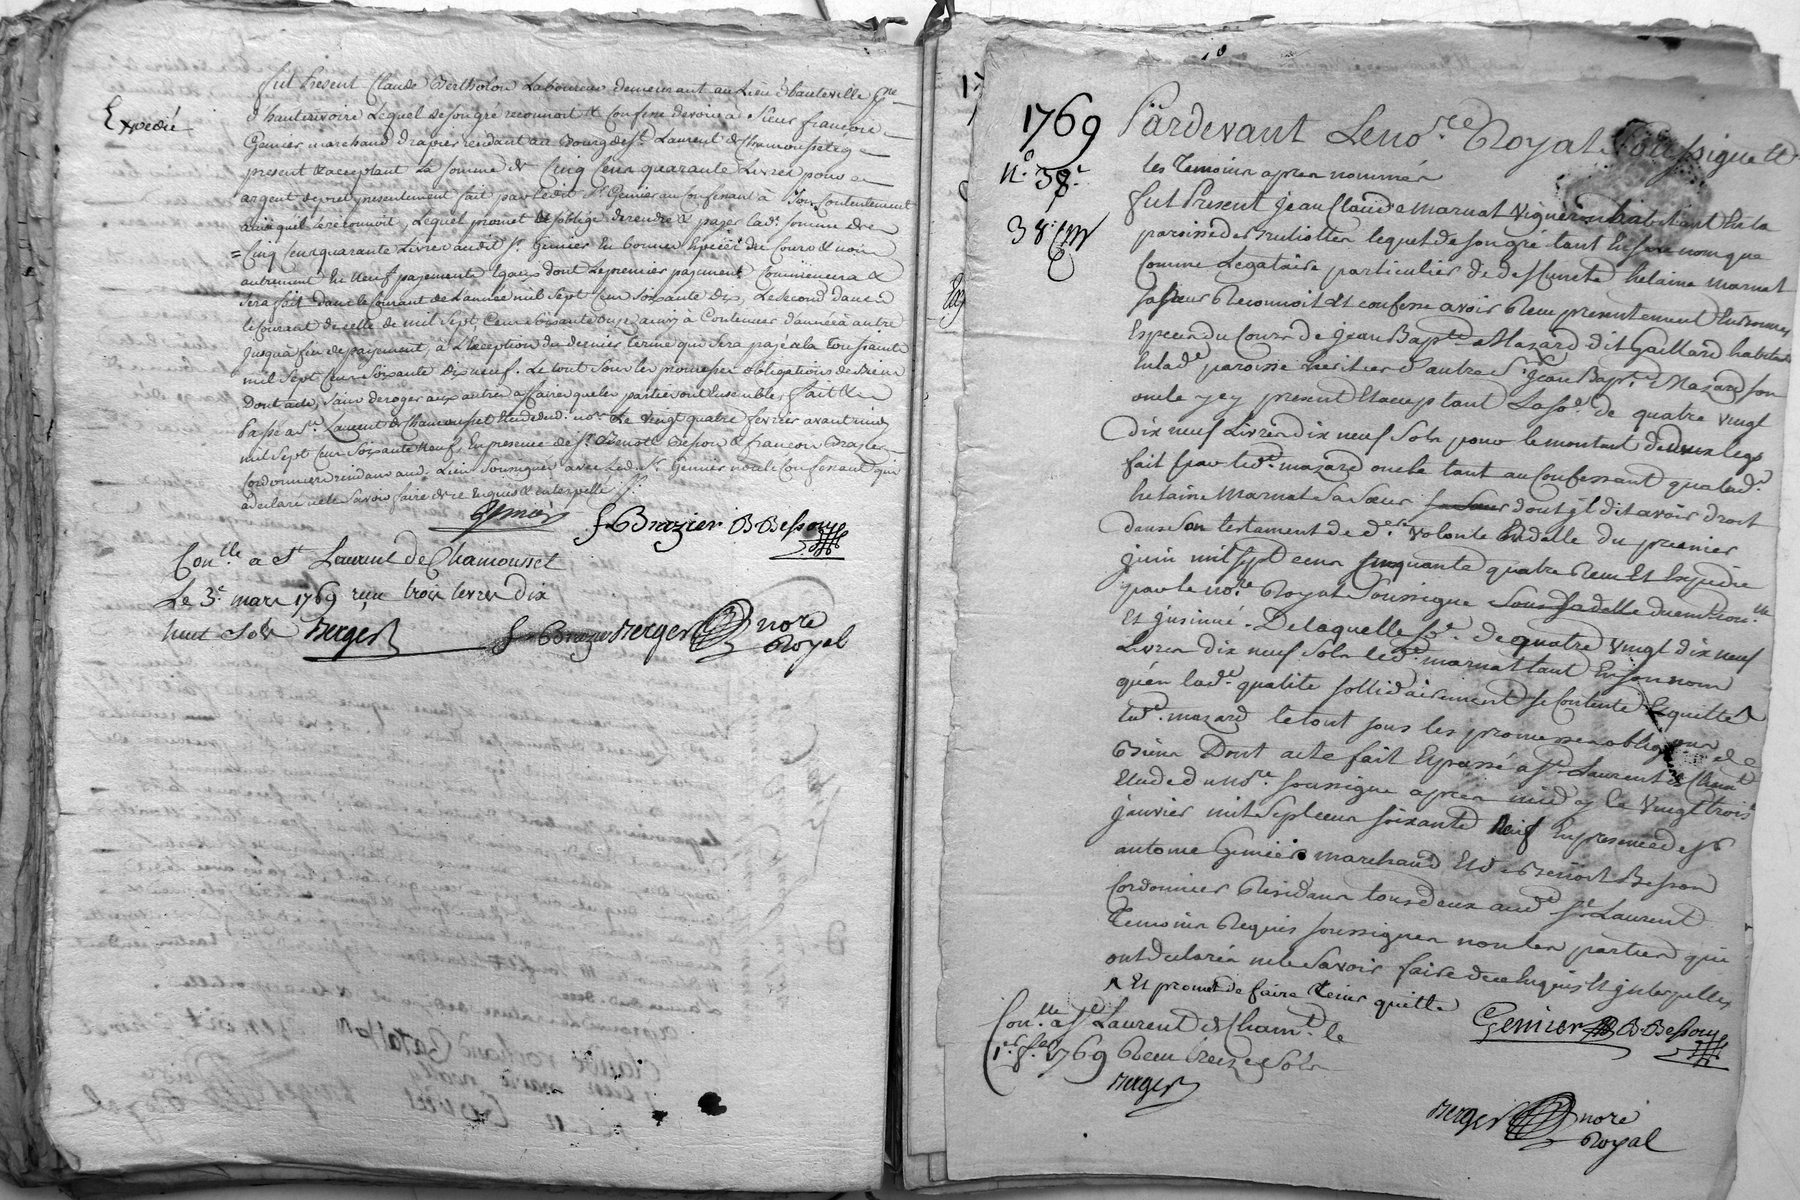 Expedié
fut Present Claude Bertholon Laboureur demeurant au Lieu d'hauteville psse
d'hauterivoire Lequel de son gré reconnoit & Confesse devoir a Sieur françois
Genier marchand drapier residant au Bourg de st Laurent de Chamousset icy
present & acceptant La Somme de Cinq Cens quarante Livres pour
argent de pret presentement fait par ledit sr Genier au Confessant à son Contentement
ainsi qu'il le reconnoit, Lequel promet & s'oblige de rendre & payer lad. somme de
Cinq Cens quarante Livres audit sr Genier En bonnes Especes du Cours & non
autrement En Neuf payements Egaux dont Le premier payement Commencera &
sera fait dans le Courant de L'année mil Sept Cens Soixante dix, Le second dans
le Courant de celle de mil sept Cens soixante onze ainsi à Continuer d'année à autre
jusqu'à fin de payement, à L'Exception du dernier terme qui sera payé a la Toussainte
mil sept Cens Soixante dix neuf. Le tout Sous les promesses obligations de Biens
Dont acte, sans deroger aux autres affaires que les parties ont Ensemble, fait &
Passé a st Laurent de Chamousset Etude dud. nore Le vingt quatre fevrier avant midy
mil Sept Cens Soixante Neuf, En presence de sr Benoit Besson & françois Brazier
Cordonniers residans aud. Lieu Soussignés avec Led. sr Genier non le Confessant qui
a declaré ne le Savoir faire de ce Enquis & interpellé
Genier f Brazier B. Besson
Con.lle a st Laurent de Chamousset
Le 3e mars 1769 reçu trois livres dix
huit Sols Berger
Berger nore
Royal
1769
N.o 38.e
38.
Pardevant Le no.re Royal Soussigné &
les Temoins apres nommés
fut Present Jean Claude Marnat Vigneron habitant En la
paroisse des Bruliolles lequel de son gré tant En son nom que
Comme Legataire particulier de deffuncte helaine Marnat
sa sœur Reconnoit et confesse avoir Reçu presentement En bonnes
Especes du Cours de Jean Bap.te Mazard dit Gaillard habitant
En lad.e paroisse heritier d'autre Sr Jean Bap.te Mazard son
oncle icy present Et acceptant La so.e de quatre vingt
dix neuf Livres dix neuf Sols pour le montant de deux legs
fait par led.t mazard oncle tant au Confessant qu'a lad.
helaine Marnat sa Sœur dont il dit avoir droit
dans son testament de d.re volonté En datte du premier
juin mil sept cens Cinquante quatre Reçu Et Expedié
par le no.re Royal Soussigné
Et jnsinué. De laquelle so.e de quatre vingt dix neuf
Livres dix neuf Sols led.t marnat tant En son nom
qu'en lad.e qualité sollidairement se Contente Et quitte
led.t mazard le tout sous les promesses oblig.ons de
Biens Dont acte fait Et passé a st Laurent de Cham.t
Etude du no.re Soussigné apres midy le vingt trois
janvier mil sept cens soixante Neuf En presence de sr
antoine Genier marchand Et de Benoit Besson
Cordonnier Residans tous deux aud.t st Laurent
Temoins Requis soussignés non les parties qui
ont declarés ne le Savoir faire de ce Enquis Et jnterpellés
Et promet de faire tenir quitte
Genier B. Besson
Con.lle a st Laurent de Cham.t le
1.er f.er 1769 Reçu treize Sols
Berger
Berger nore
Royal